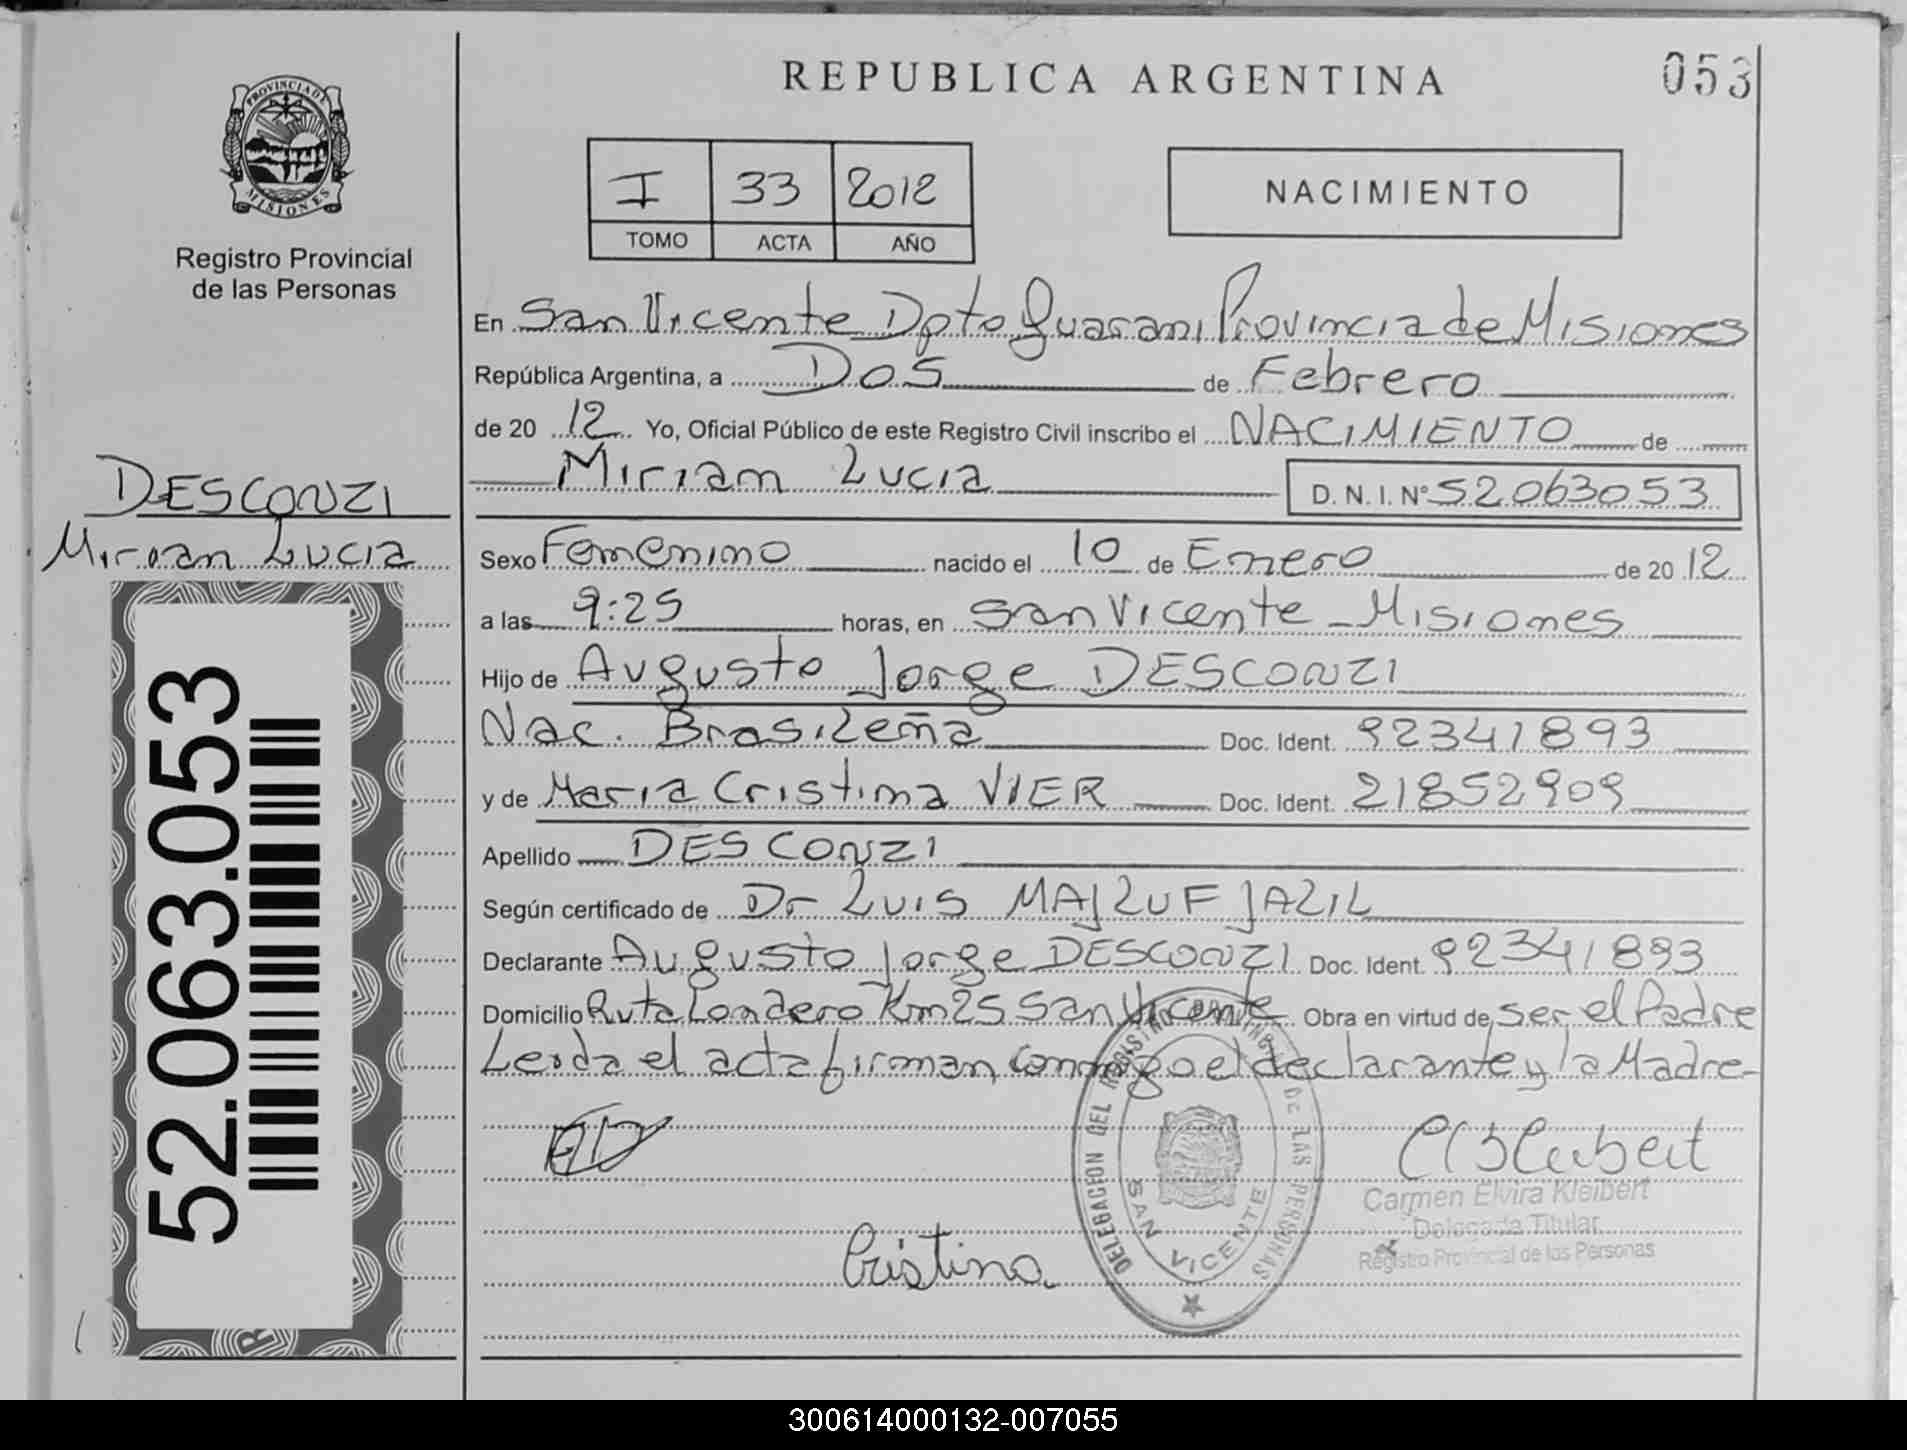 REPUBLICA ARGENTINA
053
PROVINCIA DE
MISIONES
Registro Provincial
de las Personas
I 33 2012
TOMO ACTA AÑO
NACIMIENTO
En San Vicente Dpto Guarani Provincia de Misiones
República Argentina, a Dos de Febrero
de 20 12 Yo, Oficial Público de este Registro Civil inscribo el NACIMIENTO de
Miriam Lucia D.N.I. Nº 52063053
DESCONZI
Miriam Lucia
52.063.053
Sexo Femenino nacido el 10 de Enero de 20 12
a las 9:25 horas, en San Vicente - Misiones
Hijo de Augusto Jorge DESCONZI
Nac. Brasileña Doc. Ident. 92341893
y de Maria Cristina VIER Doc. Ident. 21852909
Apellido DESCONZI
Según certificado de Dr Luis MAJLUF JALIL
Declarante Augusto Jorge DESCONZI Doc. Ident. 92341893
Domicilio Ruta Londero Km 25 San Vicente Obra en virtud de ser el Padre
Leida el acta firman conmigo el declarante y la Madre-
DELEGACION DEL REGISTRO PROVINCIAL DE LAS PERSONAS
SAN VICENTE
Carmen Elvira Kleibert
Delegada Titular
Registro Provincial de las Personas
Cristina
300614000132-007055